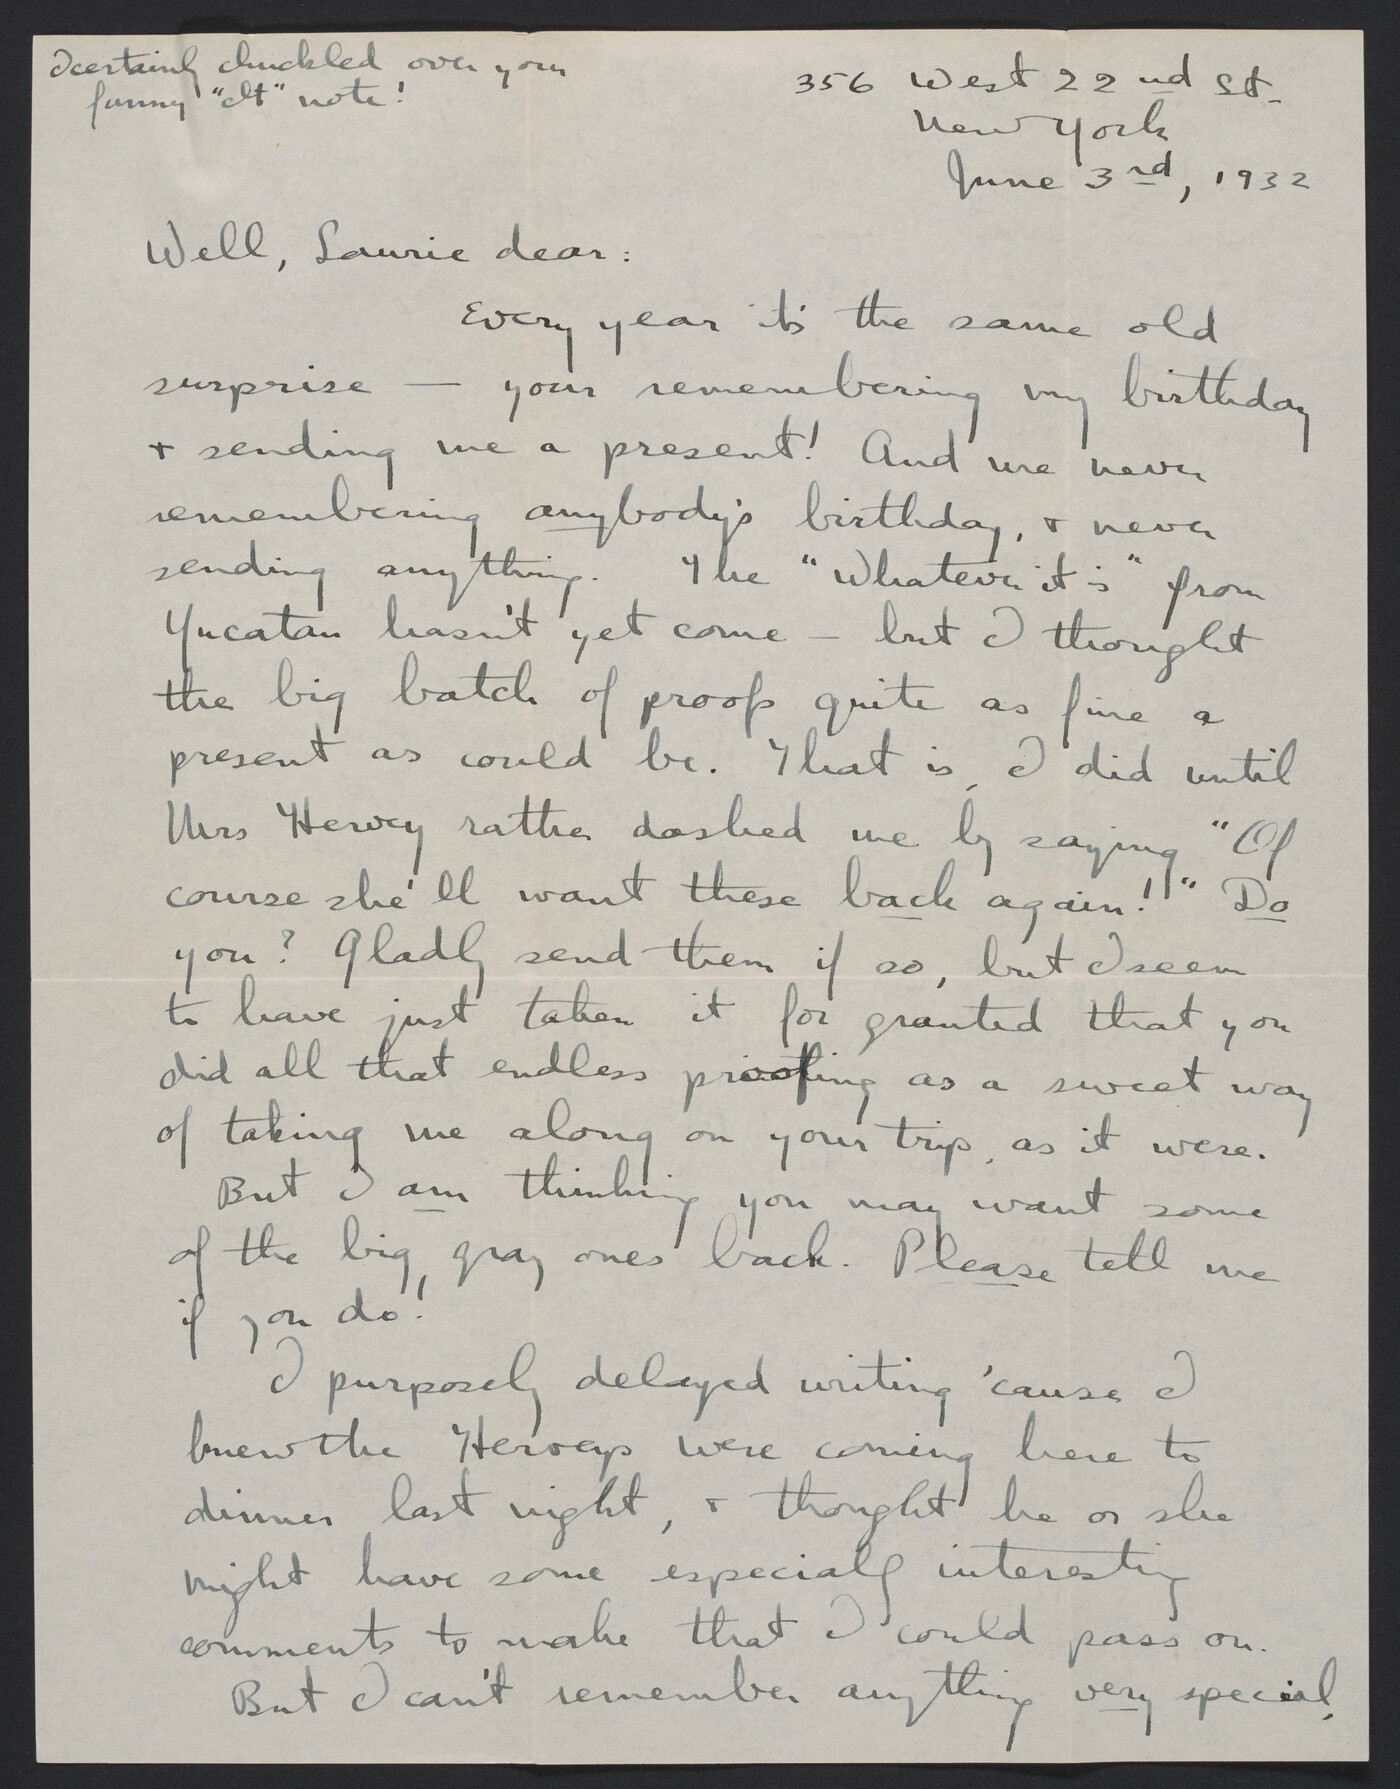 I certainly chuckled over your
funny "clt" note!
356 West 22nd St.
New York
June 3rd, 1932
Well, Laurie dear:
Every year it's the same old
surprise — your remembering my birthday
+ sending me a present! And me never
remembering anybody's birthday, + never
sending anything. The "Whatever it is" from
Yucatan hasn't yet come — but I thought
the big batch of proofs quite as fine a
present as could be. That is, I did until
Mrs Hervey rather dashed me by saying "Of
course she'll want these back again!" Do
you? Gladly send them if so, but I seem
to have just taken it for granted that you
did all that endless proofing as a sweet way
of taking me along on your trip, as it were.
But I am thinking you may want some
of the big, gray ones back. Please tell me
if you do!
I purposely delayed writing 'cause I
knew the Herveys were coming here to
dinner last night, + thought he or she
might have some especially interesting
comments to make that I could pass on.
But I can't remember anything very special,